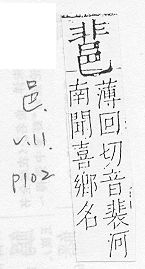 𨛬
薄回切音裴河
南聞喜鄉名
邑.
v.11.
p102